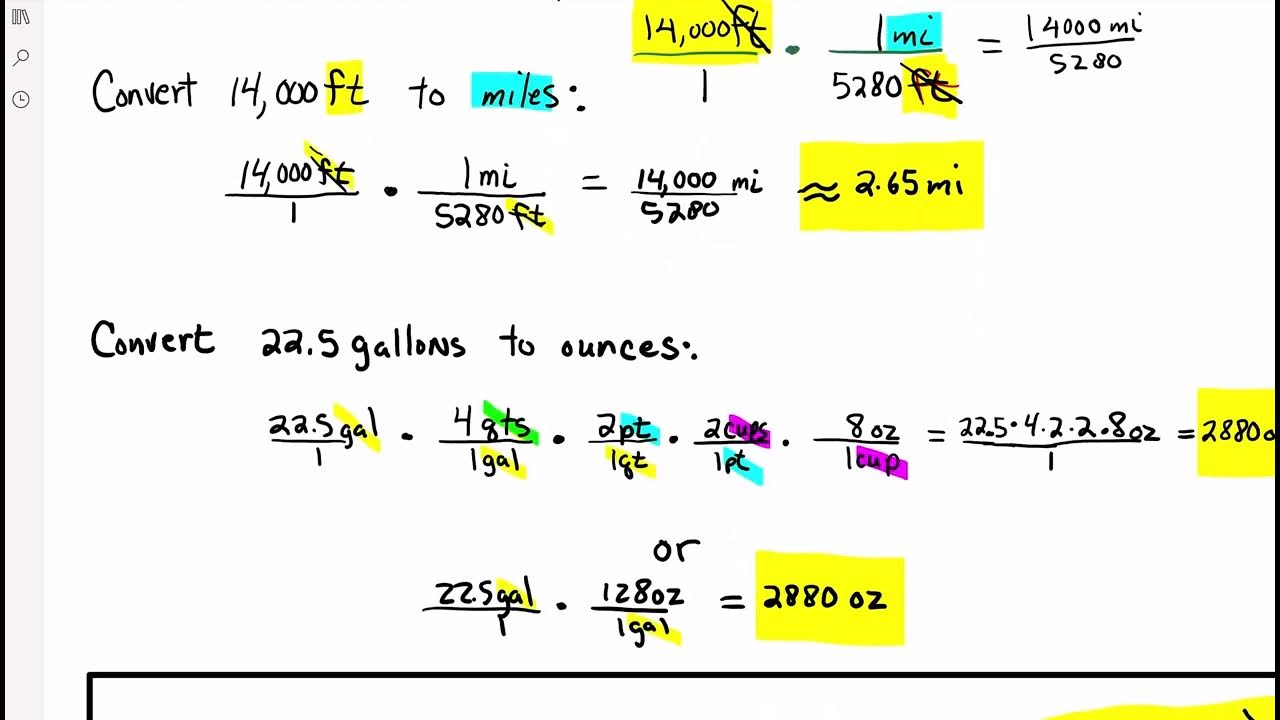 14,000ft/1 · 1mi/5280ft = 14000 mi/5280
Convert 14,000ft to miles:
14,000ft/1 · 1mi/5280ft = 14,000/5280 mi ≈ 2.65mi
Convert 22.5 gallons to ounces:
22.5gal/1 · 4qts/1gal · 2pt/1qt · 2cups/1pt · 8oz/1cup = 22.5·4·2·2·8oz/1 = 2880o
or
22.5gal/1 · 128oz/1gal = 2880 oz